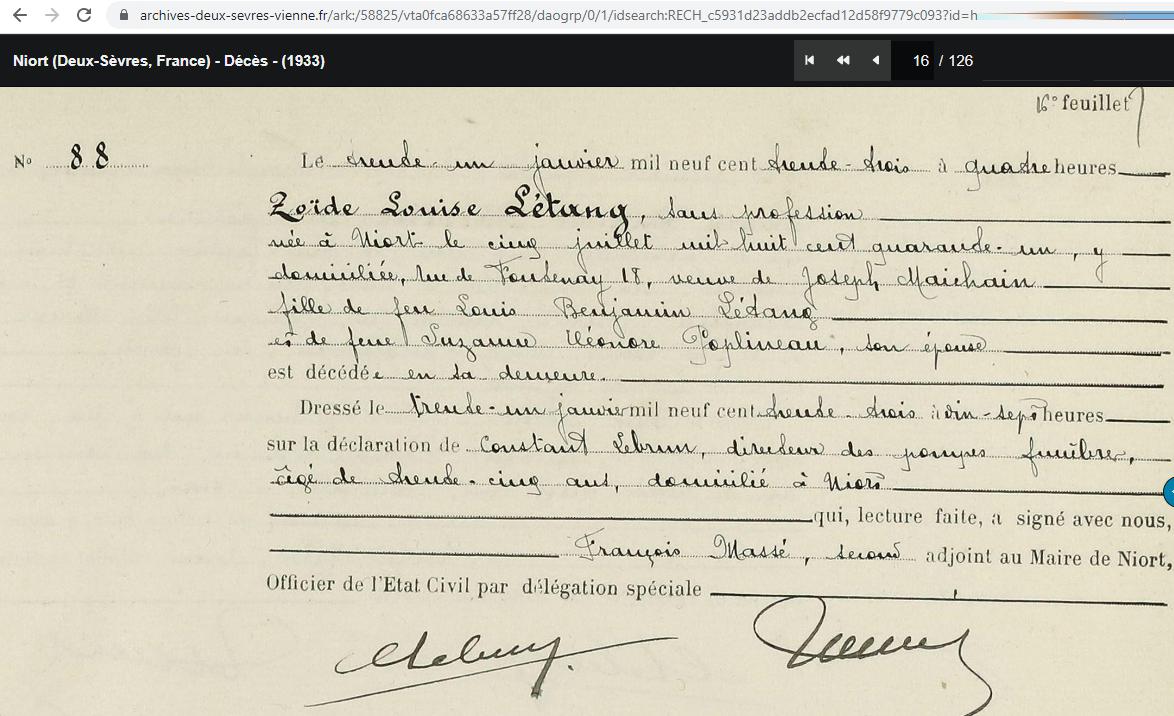 archives-deux-sevres-vienne.fr/ark:/58825/vta0fca68633a57ff28/daogrp/0/1/idsearch:RECH_c5931d23addb2ecfad12d58f9779c093?id=h
Niort (Deux-Sèvres, France) - Décès - (1933)
16 / 126
16e feuillet
No 88
Le trente-un janvier mil neuf cent trente-trois à quatre heures
Zoïde Louise Létang, sans profession
née à Niort le cinq juillet mil huit cent quarante-un, y
domiciliée, rue de Fontenay 18, veuve de Joseph Maichain
fille de feu Louis Benjamin Létang
et de feue Suzanne Éléonore Poplineau, son épouse
est décédée en sa demeure.
Dressé le trente-un janvier mil neuf cent trente-trois à dix-sept heures
sur la déclaration de Constant Lebrun, directeur des pompes funèbres,
âgé de trente-cinq ans, domicilié à Niort
qui, lecture faite, a signé avec nous,
François Massé, second adjoint au Maire de Niort,
Officier de l'Etat Civil par délégation spéciale